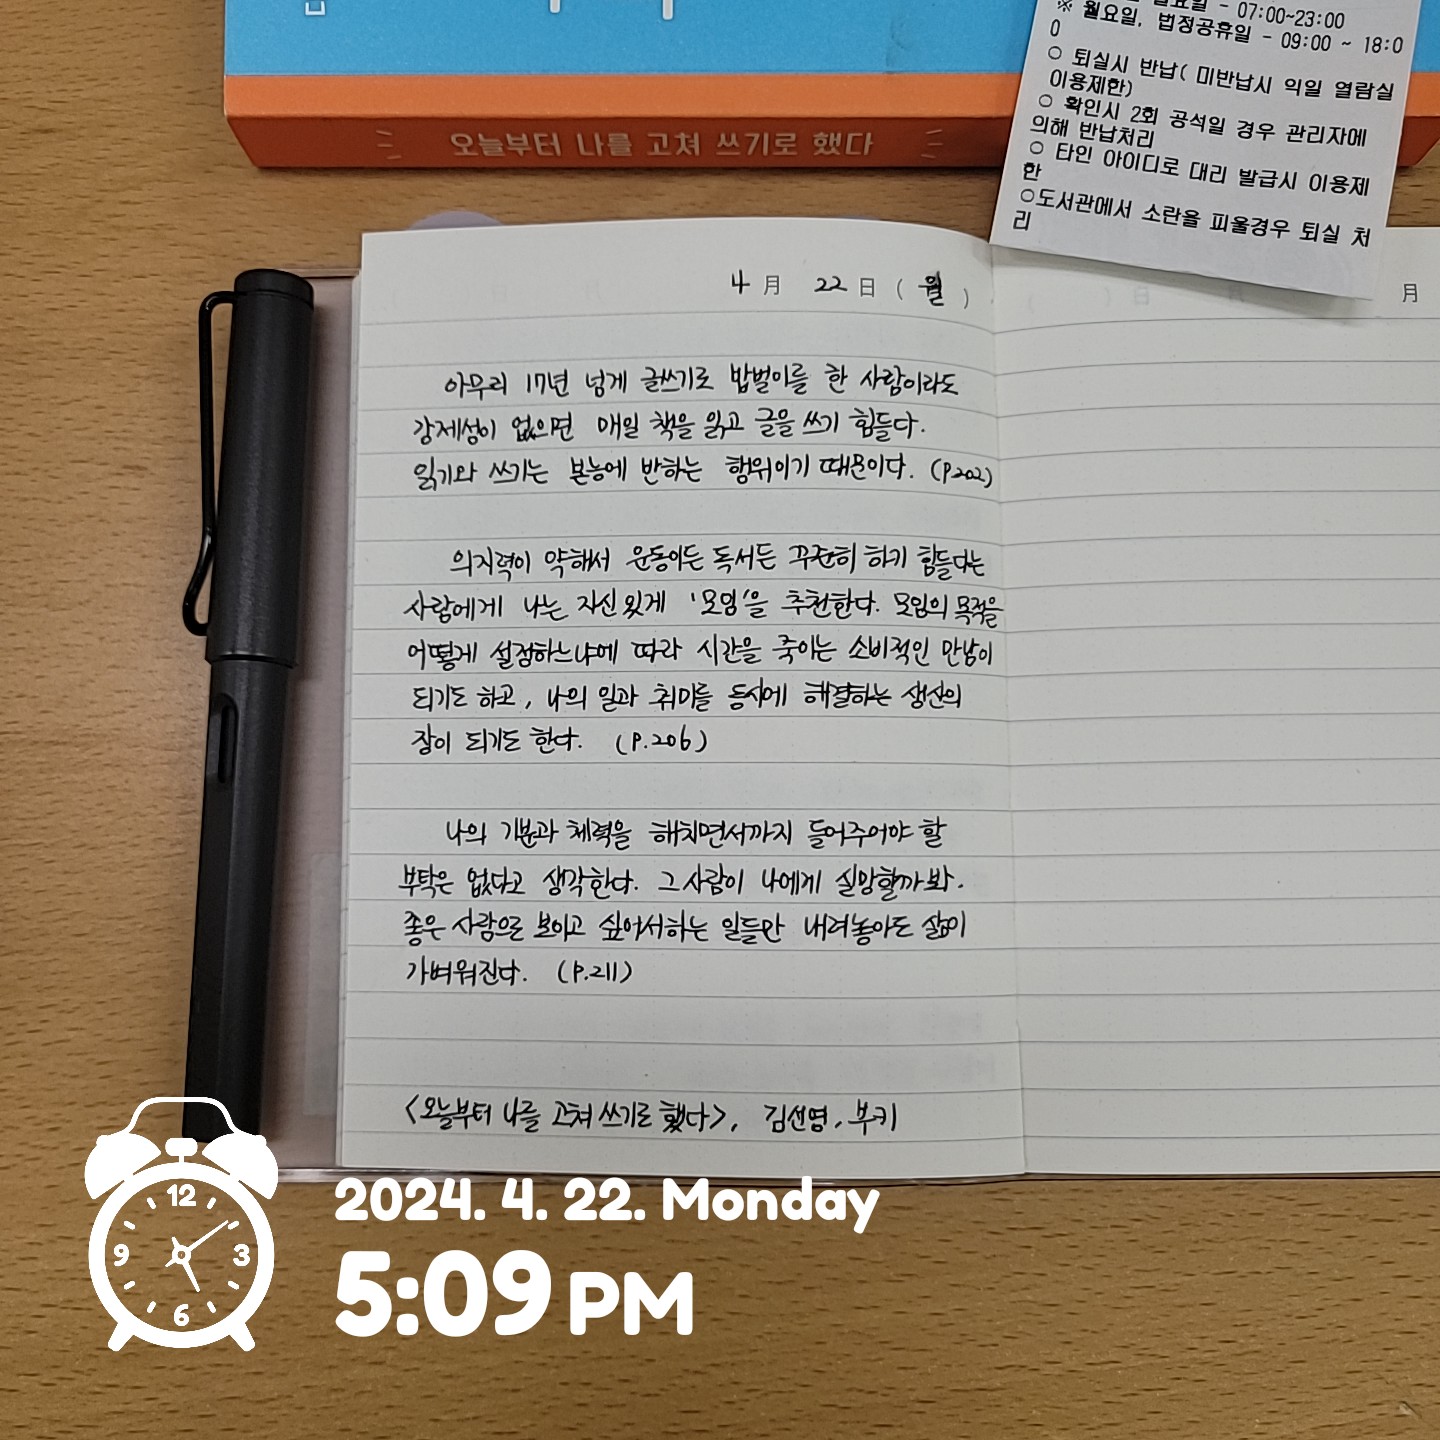 07:00~23:00
※ 월요일, 법정공휴일 - 09:00 ~ 18:0
0
○ 퇴실시 반납( 미반납시 익일 열람실
이용제한)
○ 확인시 2회 공석일 경우 관리자에
의해 반납처리
○ 타인 아이디로 대리 발급시 이용제
한
○도서관에서 소란을 피울경우 퇴실 처
리
오늘부터 나를 고쳐 쓰기로 했다
4 月 22 日 ( 월 )
月
아무리 17년 넘게 글쓰기로 밥벌이를 한 사람이라도
강제성이 없으면 매일 책을 읽고 글을 쓰기 힘들다.
읽기와 쓰기는 본능에 반하는 행위이기 때문이다. (P.202)
의지력이 약해서 운동이든 독서든 꾸준히 하기 힘들다는
사람에게 나는 자신있게 '모임'을 추천한다. 모임의 목적을
어떻게 설정하느냐에 따라 시간을 죽이는 소비적인 만남이
되기도 하고, 나의 일과 취미를 동시에 해결하는 생산의
장이 되기도 한다. (P.206)
나의 기분과 체력을 해치면서까지 들어주어야 할
부탁은 없다고 생각한다. 그 사람이 나에게 실망할까봐.
좋은 사람으로 보이고 싶어서하는 일들만 내려놓아도 삶이
가벼워진다. (P.211)
<오늘부터 나를 고쳐 쓰기로 했다>, 김선영, 부키
12
9 3
6
2024. 4. 22. Monday
5:09 PM